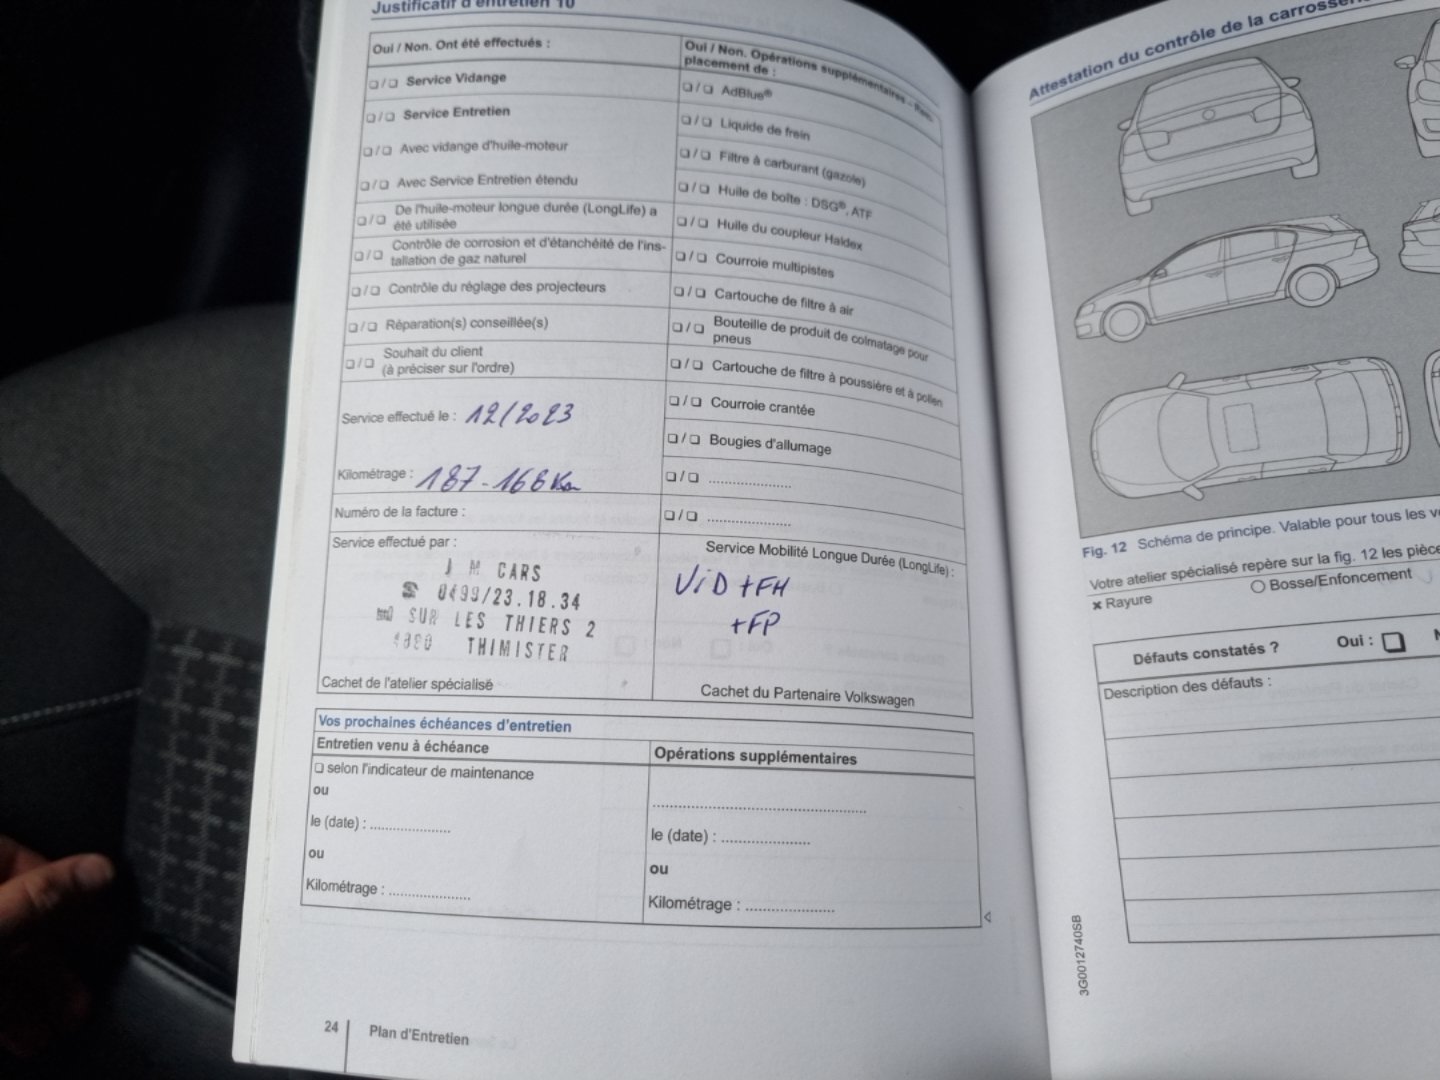 Justificatif d'entretien 10
Oui / Non. Ont été effectués :
❑ / ❑ Service Vidange
❑ / ❑ Service Entretien
❑ / ❑ Avec vidange d'huile-moteur
❑ / ❑ Avec Service Entretien étendu
❑ / ❑ De l'huile-moteur longue durée (LongLife) a
été utilisée
❑ / ❑ Contrôle de corrosion et d'étanchéité de l'ins-
tallation de gaz naturel
❑ / ❑ Contrôle du réglage des projecteurs
❑ / ❑ Réparation(s) conseillée(s)
❑ / ❑ Souhait du client
(à préciser sur l'ordre)
Service effectué le : 12/2023
Kilométrage : 187-166 Km
Numéro de la facture :
Service effectué par :
J M CARS
☎ 0499/23.18.34
SUR LES THIERS 2
4890 THIMISTER
Cachet de l'atelier spécialisé
Oui / Non. Opérations supplémentaires - Rem-
placement de :
❑ / ❑ AdBlue®
❑ / ❑ Liquide de frein
❑ / ❑ Filtre à carburant (gazole)
❑ / ❑ Huile de boîte : DSG®, ATF
❑ / ❑ Huile du coupleur Haldex
❑ / ❑ Courroie multipistes
❑ / ❑ Cartouche de filtre à air
❑ / ❑ Bouteille de produit de colmatage pour
pneus
❑ / ❑ Cartouche de filtre à poussière et à pollen
❑ / ❑ Courroie crantée
❑ / ❑ Bougies d'allumage
❑ / ❑ ....................
❑ / ❑ ....................
Service Mobilité Longue Durée (LongLife) :
ViD + FH
+ FP
Cachet du Partenaire Volkswagen
Vos prochaines échéances d'entretien
Entretien venu à échéance
❑ selon l'indicateur de maintenance
ou
le (date) : ....................
ou
Kilométrage : ....................
Opérations supplémentaires
....................
le (date) : ....................
ou
Kilométrage : ....................
24 Plan d'Entretien
Attestation du contrôle de la carrosserie
Fig. 12 Schéma de principe. Valable pour tous les
Votre atelier spécialisé repère sur la fig. 12 les
× Rayure ○ Bosse/Enfoncement
Défauts constatés ? Oui : ❑ N
Description des défauts :
3G0012740SB